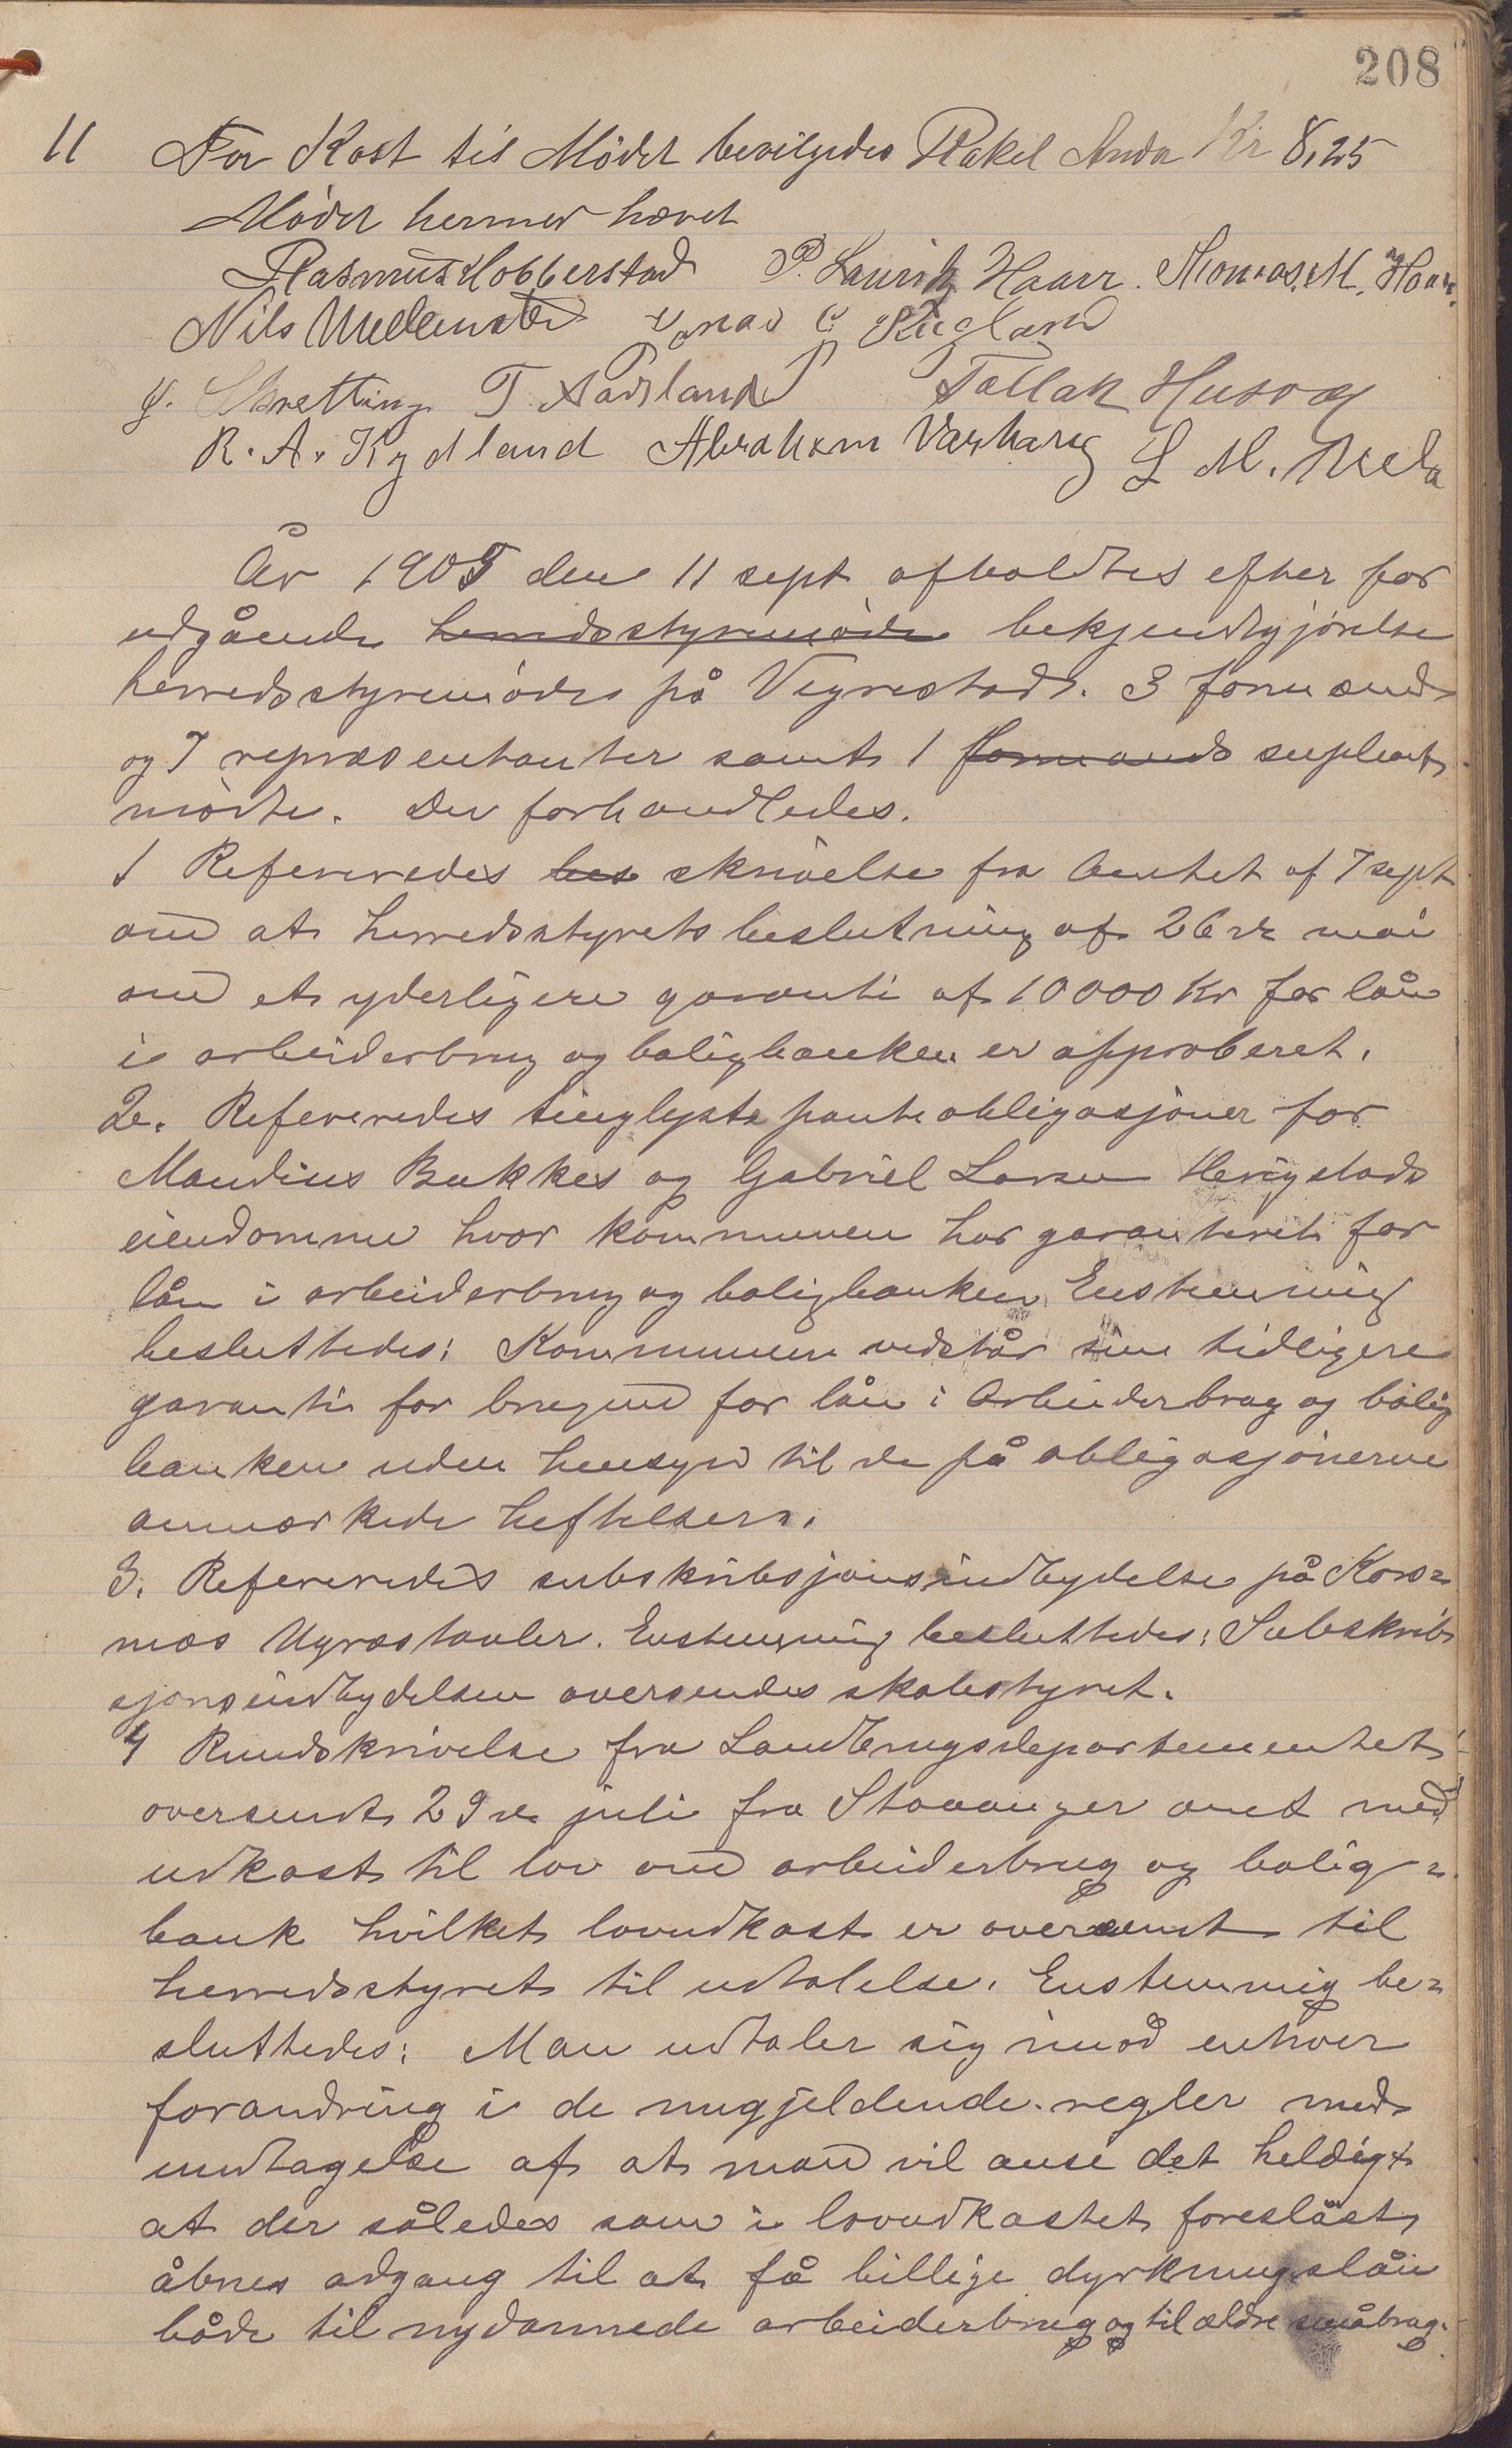 208
11 For Kost til Mödet bevilgedes Rakel Anda Kr 8,25
Mödet hermed hævet
Rasmus Hobberstad P. Lauritz Haarr. Thomas. M. Haar.
Nils Undemen Jonas C. Kugland
J. Skretting T. Aarsland Tollak Husvæg
R. A. Kydland Abraham Varhaug L. M.
År 1905 den 11 sept afholdtes efter for
udgående herredsstyremöde bekjendtgjörelse
herredsstyremöde på Vigrestad. 3 formænd
og 7 repræsentanter samt 1 formands suplent
mödte. Der forhandledes.
1 Refereredes bes skrivelse fra Amtet af 7 sept
om at herredsstyrets beslutning af 26de mai
om et yderligere garanti af 10000 Kr for lån
i arbeiderbrug og boligbanken er approberet.
2. Refereredes tinglyste panteobligasjoner for
Mandius Bukkes og Gabriel Larsen Herigstads
eiendomme hvor kommunen har garanteret for
lån i arbeiderbrug og boligbanken. Enstemmig
besluttedes: Kommunen vedstår sin tidligere
garanti for brugene for lån i Arbeiderbrug og bolig
banken uden hensyn til de på obligasjonerne
anmærkede heftelser.
3. Refereredes subskribsjonsindbydelse på Kors=
mos Ugræstavler. Enstemmig besluttedes: Subskrib
sjonsindbydelsen oversendes skolestyret.
4 Rundskrivelse fra Landbrugsdepartementet
oversendt 29de juli fra Stavanger amt med
udkast til lov om arbeiderbrug og bolig=
bank hvilket lovudkast er oversendt til
herredsstyret til udtalelse. Enstemmig be=
sluttedes: Man udtaler sig imod enhver
forandring i de nugjeldende regler med
undtagelse af at man vil anse det heldigt
at der således som i lovudkastet foreslåst
åbnes adgang til at få billige dyrkningslån
både til nydannede arbeiderbrug og til ældre småbrug.